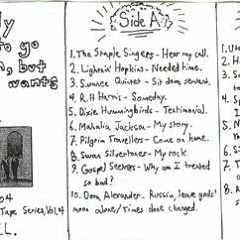 to go
but
wants
04
Tape Series, Vol. 4
Side A
1. The Staple Singers - Hear my call.
2. Lightnin' Hopkins - Needed time.
3. Sunrise Quintet - Sit down servant.
4. R.H Harris - Someday.
5. Dixie Hummingbirds - Testimonial.
6. Mahalia Jackson - My story.
7. Pilgrim Travellers - Come on home.
8. Swan Silvertones - My rock.
9. Gospel Seekers - Why am I treated
so bad?
10. Dom Alexander - Russia, leave gods'
moon alone/Times done changed.